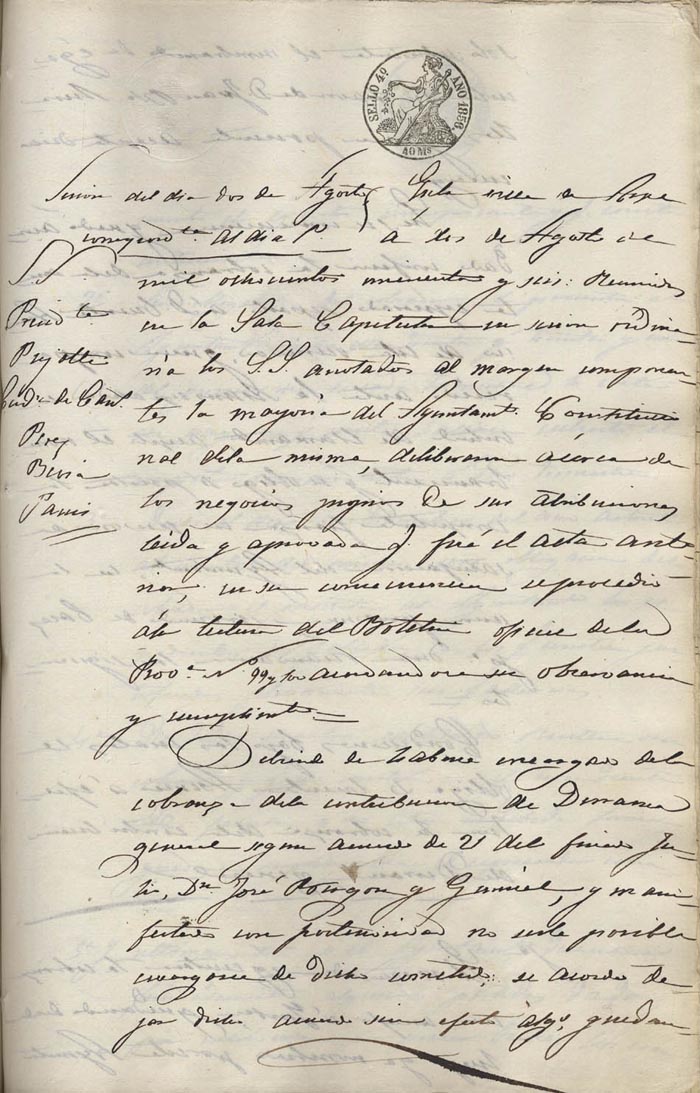 SELLO 4º AÑO 1856.
40 Ms
Sesion del dia dos de Agosto
correspond.te al dia 1º
En la villa de
á dos de Agosto de
mil ochocientos cincuenta y seis: Reunidos
en la Sala Capitular en sesion ordina-
ria los S.S. anotados al margen componen-
tes la mayoria del Ayuntamt.º Constitucio
nal de la misma, deliberaron ácerca de
los negocios propios de sus atribuciones
leida y aprovada q. fué el acta ante-
rior, en su consecuencia se procedió
á la lectura del Boletin oficial de la
Prov.ª Nº 99 y acordandose su observancia
y cumplimiento
S.S.
Presid.te
Perez
Debiendo de haberse encargado de la
cobranza de la contribucion de Derrama
general segun acuerdo de 21 del finado Ju-
lio, Dn José y y mani
festado con posterioridad no serle posible
encargarse de dicho cometido; se acordó de
jar dicho acuerdo sin efecto algº, quedan-